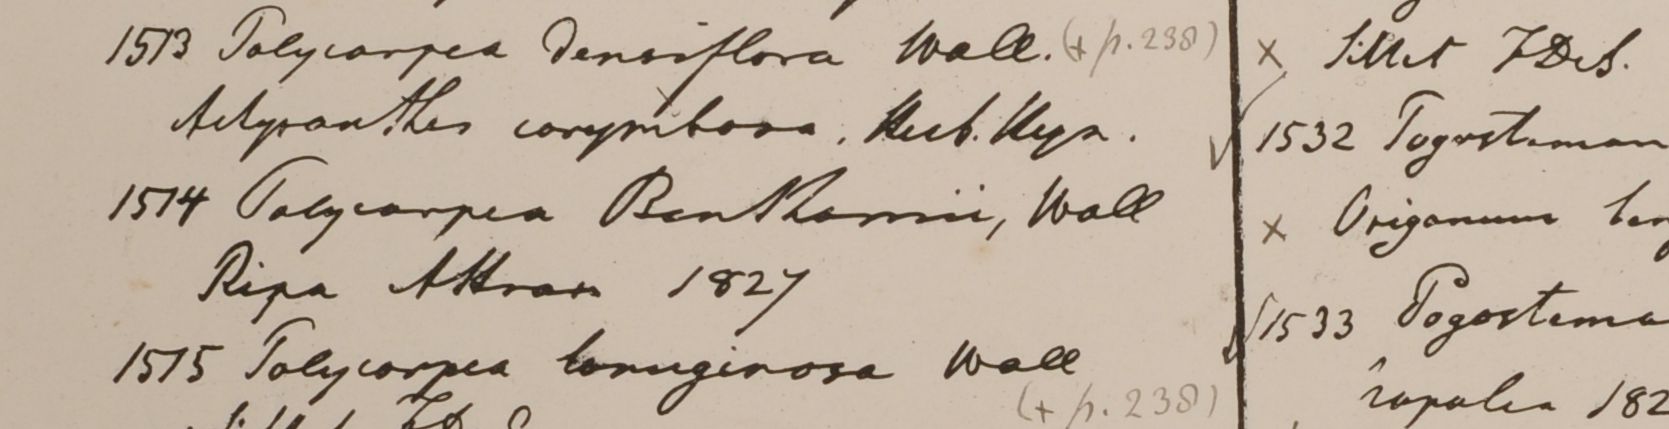 1513 Polycarpea densiflora Wall. (+ p. 238)
Achyranthes corymbosa. Herb. Heyn.
1514 Polycarpea Benthamii, Wall
Ripa Attran 1827
1515 Polycarpea lanuginosa Wall
(+ p. 238)
× Sillet F.D.S.
1532 Pogostemon
× Origanum ben
1533 Pogostemo
Napalia 182